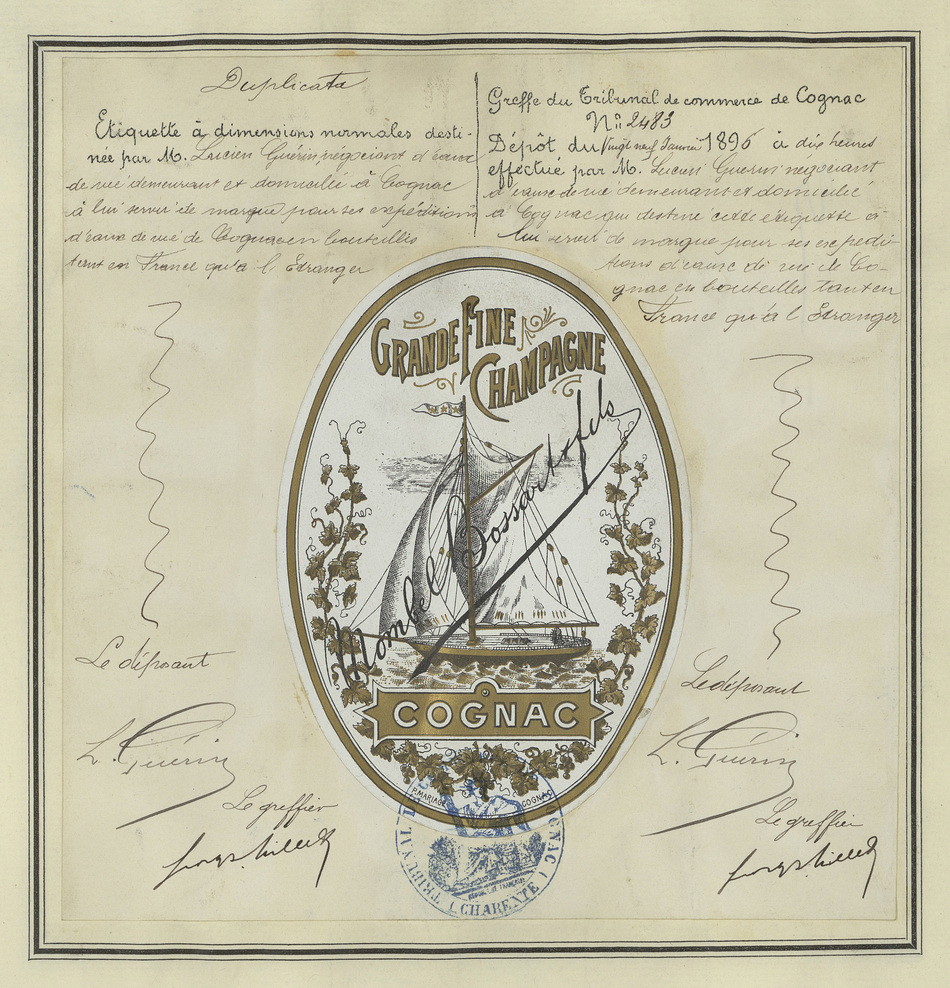 Duplicata
Etiquette à dimensions normales desti-
née par M. Lucien Guérin, négociant d'eaux
de vie demeurant et domicilié à Cognac
à lui servir de marque pour ses expéditions
d'eaux de vie de Cognac en bouteilles
tant en France qu'à l'Etranger
Le déposant
L. Guérin
Le greffier
Greffe du Tribunal de commerce de Cognac
N° 2483
Dépôt du Vingt neuf Janvier 1896 à dix heures
effectué par M. Lucien Guerin négociant
d'eaux de vie demeurant et domicilié
à Cognac qui destine cette étiquette à
lui servir de marque pour ses expédi-
tions d'eaux de vie de Co-
gnac en bouteilles tant en
France qu'à l'Etranger
Le déposant
L. Guérin
Le greffier
GRANDE FINE
CHAMPAGNE
fils
COGNAC
P. MARIAGE COGNAC
TRIBUNAL
COGNAC
(CHARENTE)